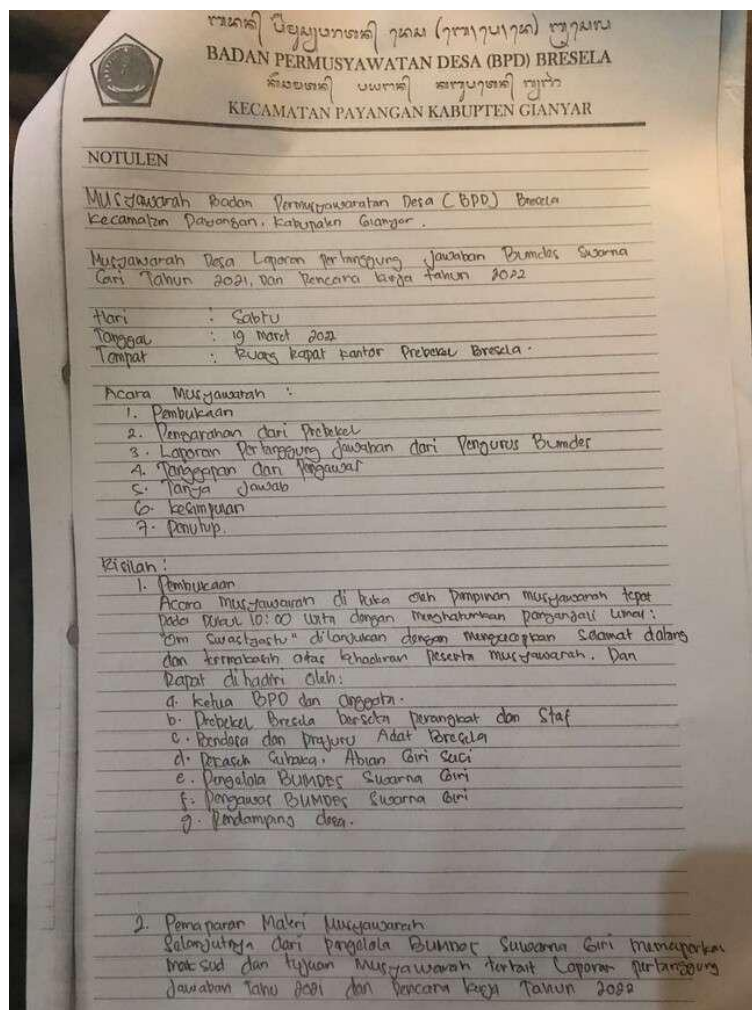 BADAN PERMUSYAWATAN DESA (BPD) BRESELA
KECAMATAN PAYANGAN KABUPTEN GIANYAR
NOTULEN
Musyawarah Badan Permusyawaratan Desa (BPD) Bresela
Kecamatan Payangan, Kabupaten Gianyar.
Musyawarah Desa Laporan Pertanggung Jawaban Bumdes Swarna
Giri Tahun 2021, Dan Rencana Kerja tahun 2022
Hari : Sabtu
Tanggal : 19 Maret 2022
Tempat : Ruang Rapat Kantor Prebekel Bresela.
Acara Musyawarah :
1. Pembukaan
2. Pengarahan dari Prebekel
3. Laporan Pertanggung Jawaban dari Pengurus Bumdes
4. Tanggapan dan Pengawas
5. Tanya Jawab
6. Kesimpulan
7. Penutup.
Risilah :
1. Pembukaan
Acara musyawarah di buka oleh pimpinan musyawarah tepat
pada pukul 10:00 Wita dengan menghaturkan panganjali umat:
"Om Swastyastu" dilanjukan dengan mengucapkan Selamat datang
dan terimakasih atas kehadiran peserta musyawarah. Dan
Rapat dihadiri oleh:
a. Ketua BPD dan anggota.
b. Prebekel Bresela berseta perangkat dan Staf
c. Bendesa dan Prajuru Adat Bresela
d. Pekaseh Subak, Abian Giri Suci
e. Pengelola BUMDES Suwarna Giri
f. Pengawas BUMDES Suwarna Giri
g. Pendamping desa.
2. Pemaparan Materi Musyawarah
Selanjutnya dari pengelola BUMDES Suwarna Giri memaparkan
maksud dan tujuan Musyawarah terkait Laporan pertanggung
Jawaban Tahu 2021 dan Rencana Kerja Tahun 2022